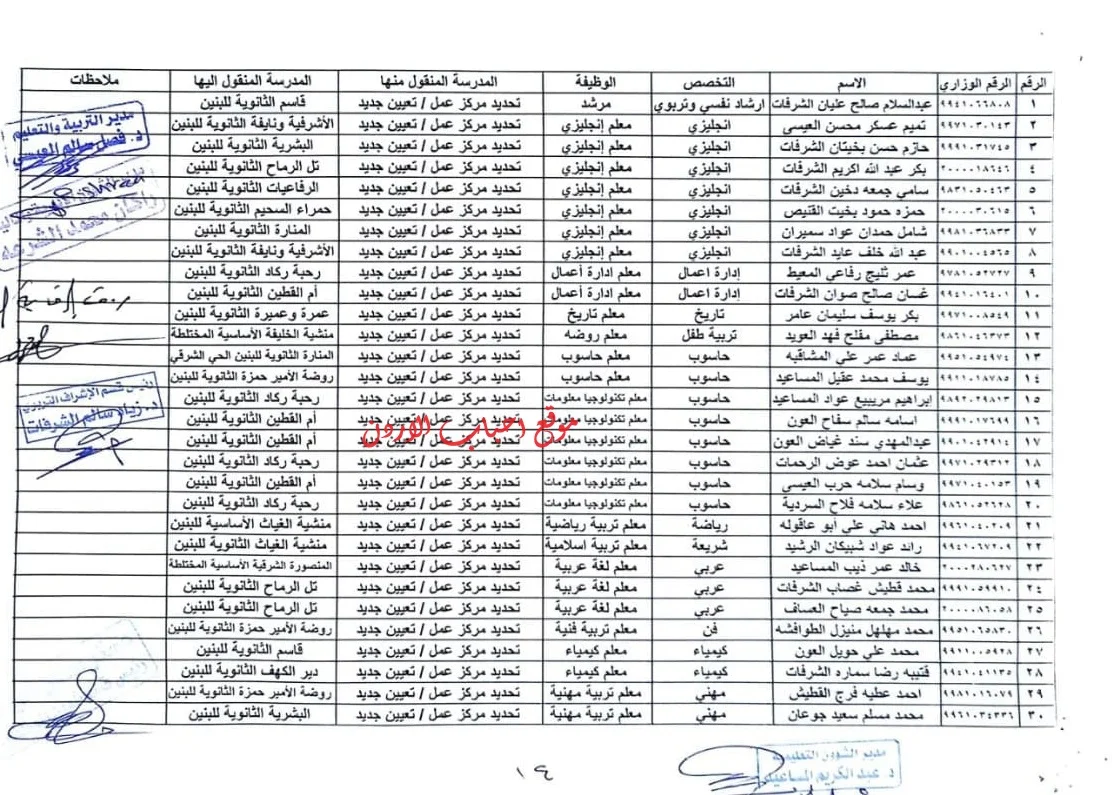 الرقم الرقم الوزاري الاسم التخصص الوظيفة المدرسة المنقول منها المدرسة المنقول اليها ملاحظات
١ ٩٩٤١٠٦٦٨٠٨ عبدالسلام صالح عليان الشرفات ارشاد نفسي وتربوي مرشد تحديد مركز عمل / تعيين جديد قاسم الثانوية للبنين
٢ ٩٩٧١٠٣٠١٤٣ تميم عسكر محسن العيسى انجليزي معلم إنجليزي تحديد مركز عمل / تعيين جديد الأشرفية ونايفة الثانوية للبنين
٣ ٩٩٩١٠٣١٧٤٥ حازم حسن بخيتان الشرفات انجليزي معلم إنجليزي تحديد مركز عمل / تعيين جديد البشرية الثانوية للبنين
٤ ٢٠٠٠٠١٨٦٤٦ بكر عبد الله اكريم الشرفات انجليزي معلم إنجليزي تحديد مركز عمل / تعيين جديد تل الرماح الثانوية للبنين
٥ ٩٨٣١٠٥٠٤٦٣ سامي جمعه دخين الشرفات انجليزي معلم إنجليزي تحديد مركز عمل / تعيين جديد الرفاعيات الثانوية للبنين
٦ ٢٠٠٠٠٣٠٦١٥ حمزه حمود بخيت القنيص انجليزي معلم إنجليزي تحديد مركز عمل / تعيين جديد حمراء السحيم الثانوية للبنين
٧ ٩٩٨١٠٣٦٨٣٣ شامل حمدان عواد سميران انجليزي معلم إنجليزي تحديد مركز عمل / تعيين جديد المنارة الثانوية للبنين
٨ ٩٩٠١٠٠٤٥٦٥ عبد الله خلف عايد الشرفات انجليزي معلم إنجليزي تحديد مركز عمل / تعيين جديد الأشرفية ونايفة الثانوية للبنين
٩ ٩٧٨١٠٥٢٧٢٧ عمر ثليج رفاعي المعيط إدارة اعمال معلم ادارة أعمال تحديد مركز عمل / تعيين جديد رحبة ركاد الثانوية للبنين
١٠ ٩٩٤١٠١٦٤٠١ غسان صالح صوان الشرفات إدارة اعمال معلم ادارة أعمال تحديد مركز عمل / تعيين جديد أم القطين الثانوية للبنين
١١ ٩٩٧١٠٠٨٥٤٩ بكر يوسف سليمان عامر تاريخ معلم تاريخ تحديد مركز عمل / تعيين جديد عمرة وعميرة الثانوية للبنين
١٢ ٩٨٦١٠٤٦٣٧٣ مصطفى مفلح فهد العويد تربية طفل معلم روضه تحديد مركز عمل / تعيين جديد منشية الخليفة الأساسية المختلطة
١٣ ٩٩٥١٠٥٤٩٧٤ عماد عمر علي المشاقبه حاسوب معلم حاسوب تحديد مركز عمل / تعيين جديد المنارة الثانوية للبنين الحي الشرقي
١٤ ٩٩١١٠١٨٧٨٥ يوسف محمد عقيل المساعيد حاسوب معلم حاسوب تحديد مركز عمل / تعيين جديد روضة الأمير حمزة الثانوية للبنين
١٥ ٩٨٩٢٠٢٩٨١٣ إبراهيم مريبيع عواد المساعيد حاسوب معلم تكنولوجيا معلومات تحديد مركز عمل / تعيين جديد رحبة ركاد الثانوية للبنين
١٦ ٩٩٩١٠١٧٦٩٩ اسامه سالم سفاح العون حاسوب معلم تكنولوجيا معلومات تحديد مركز عمل / تعيين جديد أم القطين الثانوية للبنين
موقع احباب الاردن
١٧ ٩٩٠١٠٤٢٩١٤ عبدالمهدي سند غياض العون حاسوب معلم تكنولوجيا معلومات تحديد مركز عمل / تعيين جديد أم القطين الثانوية للبنين
١٨ ٩٩٧١٠٢٩٣١٢ عثمان احمد عوض الرحمات حاسوب معلم تكنولوجيا معلومات تحديد مركز عمل / تعيين جديد رحبة ركاد الثانوية للبنين
١٩ ٩٩٧١٠٤٠١٥٣ وسام سلامه حرب العيسى حاسوب معلم تكنولوجيا معلومات تحديد مركز عمل / تعيين جديد أم القطين الثانوية للبنين
٢٠ ٩٨٦١٠٥٢٦٢٨ علاء سلامه فلاح السردية حاسوب معلم تكنولوجيا معلومات تحديد مركز عمل / تعيين جديد رحبة ركاد الثانوية للبنين
٢١ ٩٩٦١٠٤٠٢٠٩ احمد هاني علي أبو عاقوله رياضة معلم تربية رياضية تحديد مركز عمل / تعيين جديد منشية الغياث الأساسية للبنين
٢٢ ٩٩٤١٠٦٧٢٠٩ رائد عواد شبيكان الرشيد شريعة معلم تربية اسلامية تحديد مركز عمل / تعيين جديد منشية الغياث الثانوية للبنين
٢٣ ٢٠٠٠٠٢٨٠٦٢٧ خالد عمر ذيب المساعيد عربي معلم لغة عربية تحديد مركز عمل / تعيين جديد المنصورة الشرقية الأساسية المختلطة
٢٤ ٩٩٩١٠٥٩٩١٠ محمد قطيش غصاب الشرفات عربي معلم لغة عربية تحديد مركز عمل / تعيين جديد تل الرماح الثانوية للبنين
٢٥ ٢٠٠٠٠٨٦٠٥٨ محمد جمعه صياح العساف عربي معلم لغة عربية تحديد مركز عمل / تعيين جديد تل الرماح الثانوية للبنين
٢٦ ٩٩٥١٠٦٥٨٣٠ محمد مهلهل منيزل الطوافشه فن معلم تربية فنية تحديد مركز عمل / تعيين جديد روضة الأمير حمزة الثانوية للبنين
٢٧ ٩٩١١٠٠٥٩٢٨ محمد علي حويل العون كيمياء معلم كيمياء تحديد مركز عمل / تعيين جديد قاسم الثانوية للبنين
٢٨ ٩٩٤١٠٤١١٣٥ قتيبه رضا سماره الشرفات كيمياء معلم كيمياء تحديد مركز عمل / تعيين جديد دير الكهف الثانوية للبنين
٢٩ ٩٩٨١٠١٦٠٧٩ احمد عطيه فرج القطيش مهني معلم تربية مهنية تحديد مركز عمل / تعيين جديد روضة الأمير حمزة الثانوية للبنين
٣٠ ٩٩٦١٠٣٤٣٣٦ محمد مسلم سعيد جوعان مهني معلم تربية مهنية تحديد مركز عمل / تعيين جديد البشرية الثانوية للبنين
مدير التربية والتعليم
د. فصل سالم العيسى
رئيس قسم الإشراف التربوي
د. زياد سالم الشرفات
مدير الشؤون التعليمية
د. عبد الكريم المساعيد
١٤